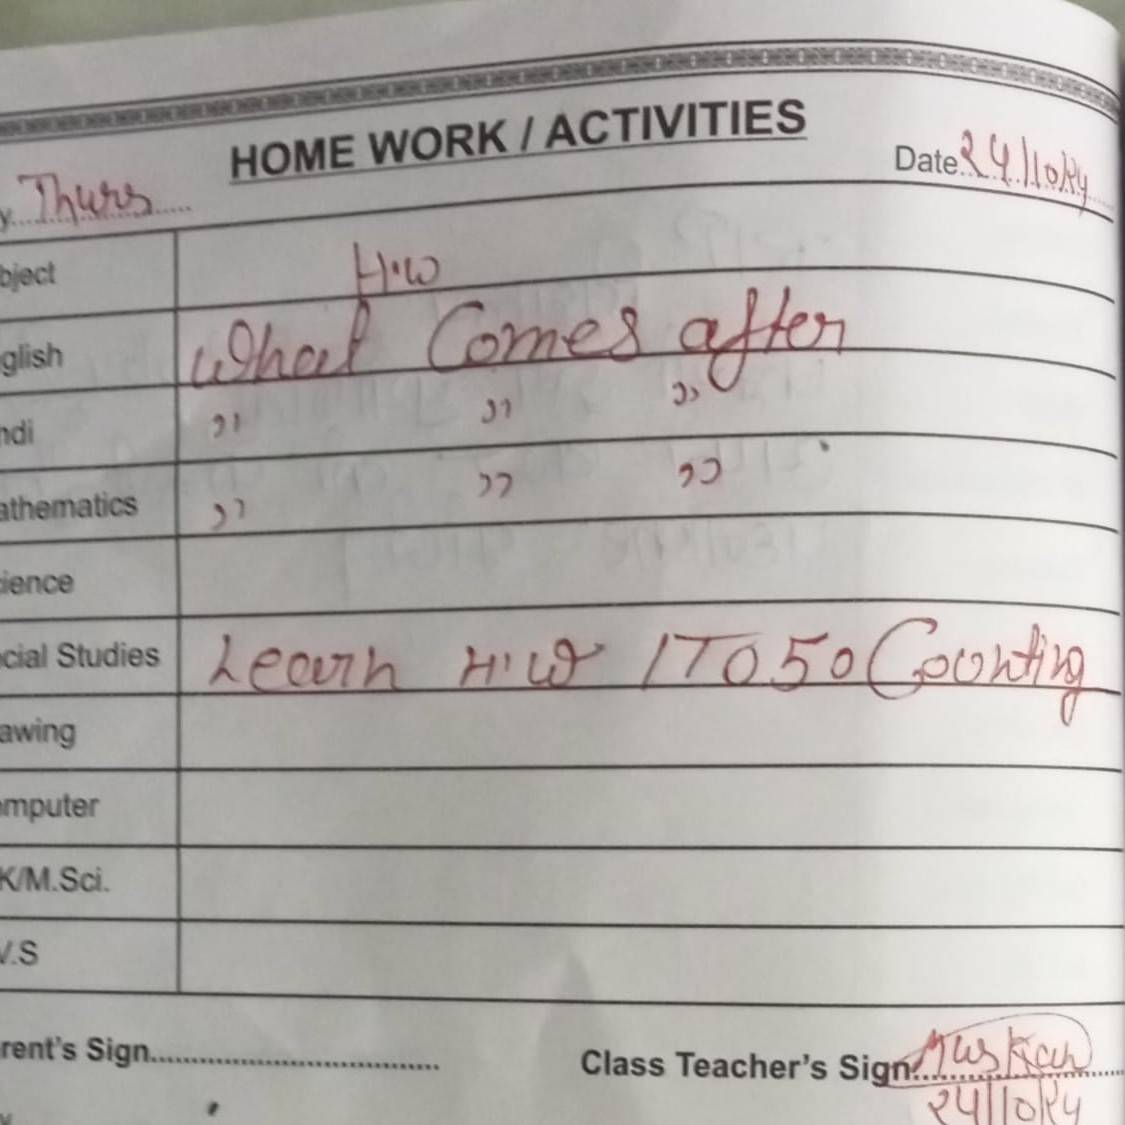 HOME WORK / ACTIVITIES
y Thurs Date 24/10/24
bject H.W
glish What Comes after
ndi " " "
athematics " " "
ience
cial Studies Learn H.W 1 TO 50 Counting
awing
omputer
K/M.Sci.
V.S
rent's Sign Class Teacher's Sign. Muskan
24/10/24